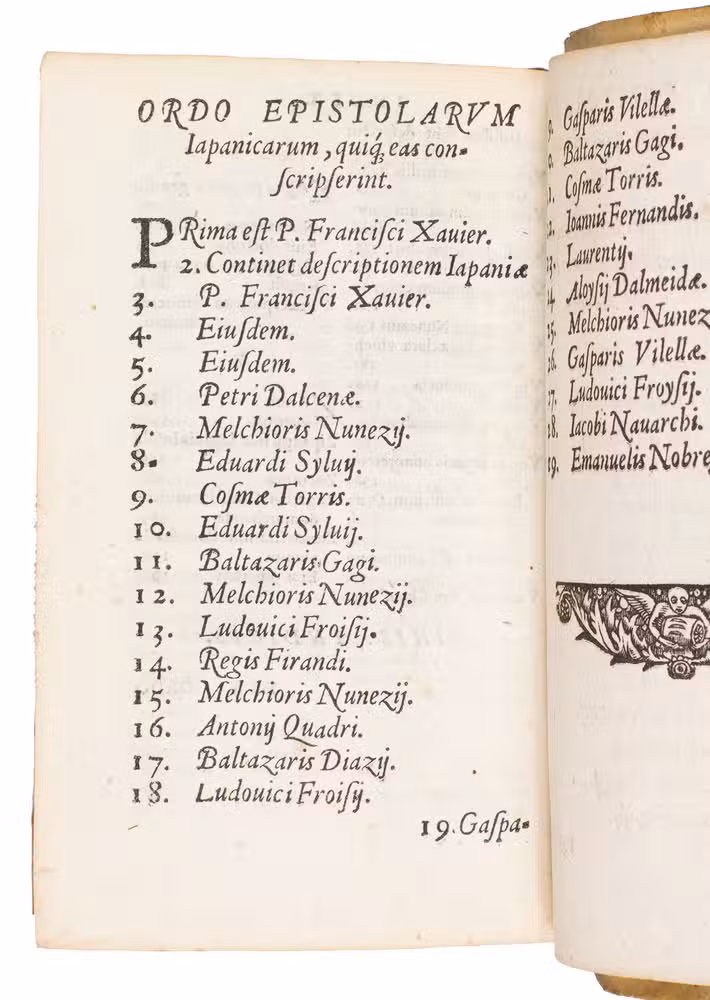 ORDO EPISTOLARVM
Iapanicarum, quiq́; eas con-
ſcripſerint.
PRima eſt P. Franciſci Xauier.
2. Continet deſcriptionem Iapaniæ
3. P. Franciſci Xauier.
4. Eiuſdem.
5. Eiuſdem.
6. Petri Dalcenæ.
7. Melchioris Nunezij.
8. Eduardi Syluij.
9. Coſmæ Torris.
10. Eduardi Syluij.
11. Baltazaris Gagi.
12. Melchioris Nunezij.
13. Ludouici Froiſij.
14. Regis Firandi.
15. Melchioris Nunezij.
16. Antonij Quadri.
17. Baltazaris Diazij.
18. Ludouici Froiſij.
19. Gaſpa-
9. Gaſparis Vilellæ.
0. Baltazaris Gagi.
1. Coſmæ Torris.
2. Ioannis Fernandis.
3. Laurentij.
24 Aloyſij Dalmeidæ.
25. Melchioris Nunez
26. Gaſparis Vilellæ.
27. Ludouici Froyſij.
28. Iacobi Nauarchi.
29. Emanuelis Nobre